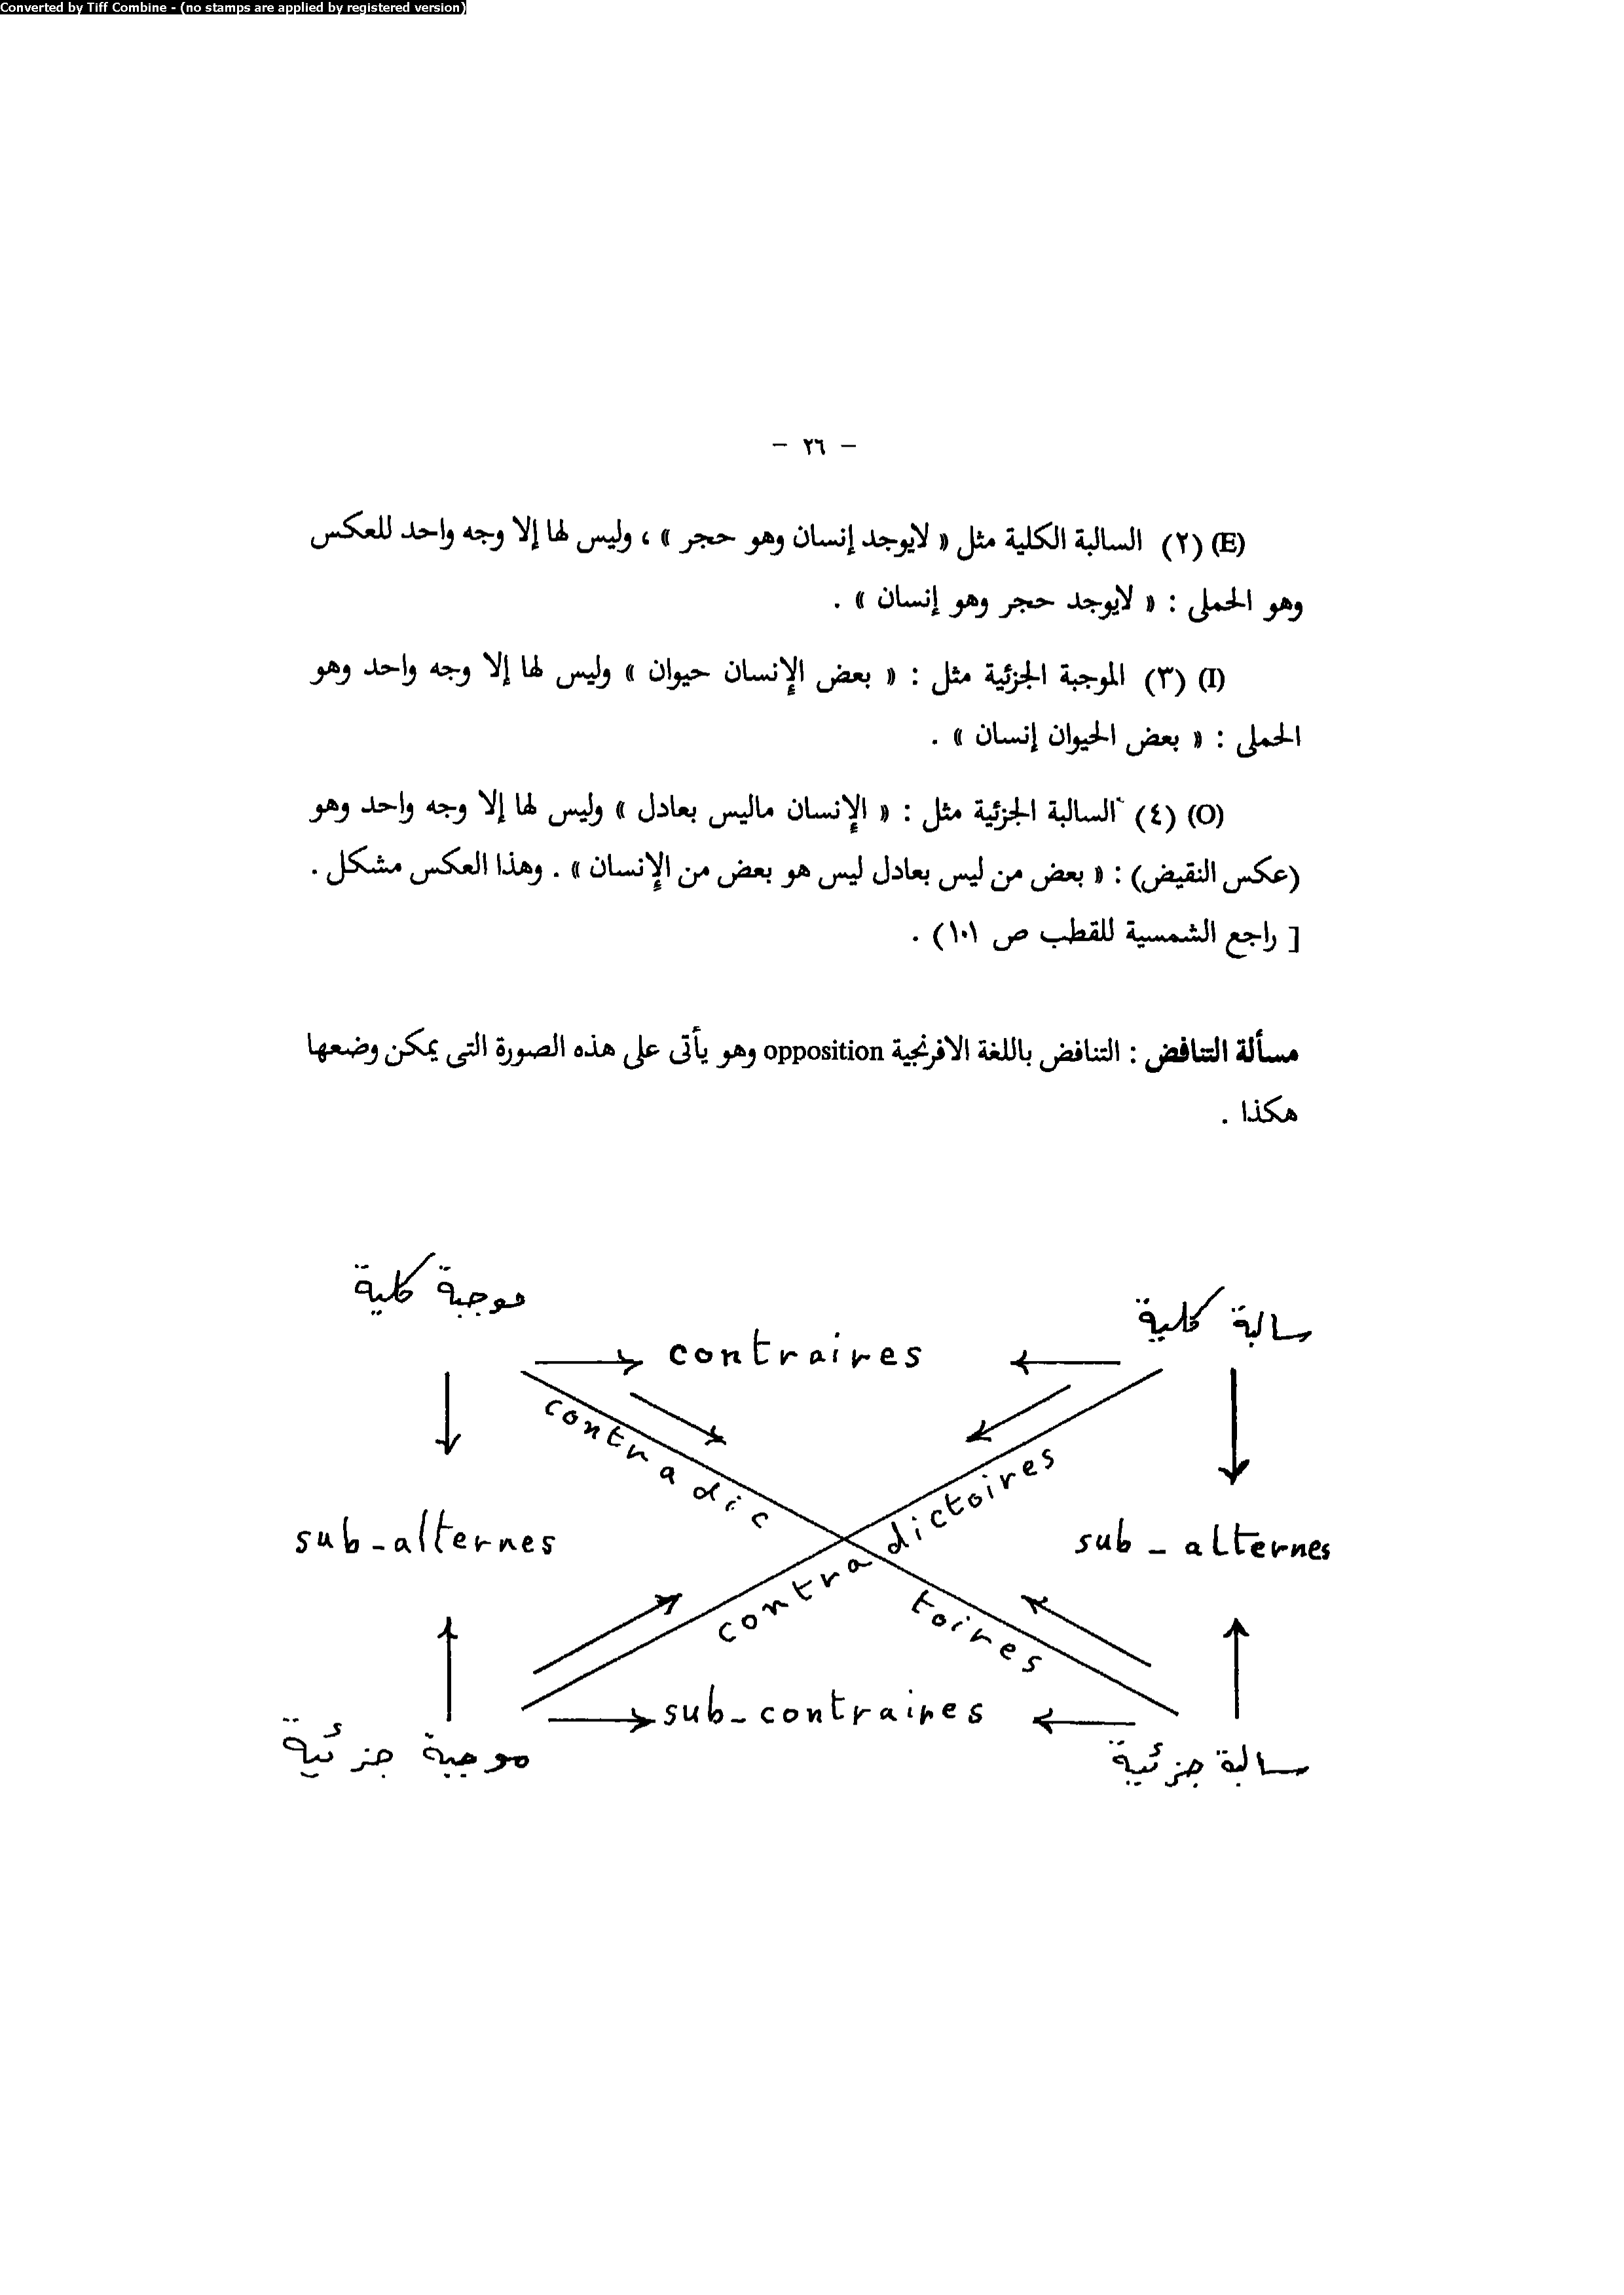 Converted by Tiff Combine - (no stamps are applied by registered version)
– ٢٦ –
(E) (٢) السالبة الكلية مثل « لايوجد إنسان وهو حجر » ، وليس لها إلا وجه واحد للعكس
وهو الحملى : « لايوجد حجر وهو إنسان » .
(I) (٣) الموجبة الجزئية مثل : « بعض الإنسان حيوان » وليس لها إلا وجه واحد وهو
الحملى : « بعض الحيوان إنسان » .
(O) (٤) السالبة الجزئية مثل : « الإنسان ماليس بعادل » وليس لها إلا وجه واحد وهو
(عكس النقيض) : « بعض من ليس بعادل ليس هو بعض من الإنسان » . وهذا العكس مشكل .
[ راجع الشمسية للقطب ص ١٠١) .
مسألة التنافض : التنافض باللغة الافرنجية opposition وهو يأتى على هذه الصورة التى يمكن وضعها
هكذا .
موجبة كلية
سالبة كلية
contraires
contradic
contradictoires
sub-alternes
sub-alternes
toires
sub-contraires
موجبة جزئية
سالبة جزئية